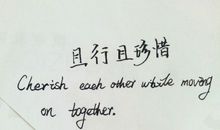 且行且珍惜
Cherish each other while moving
on together.